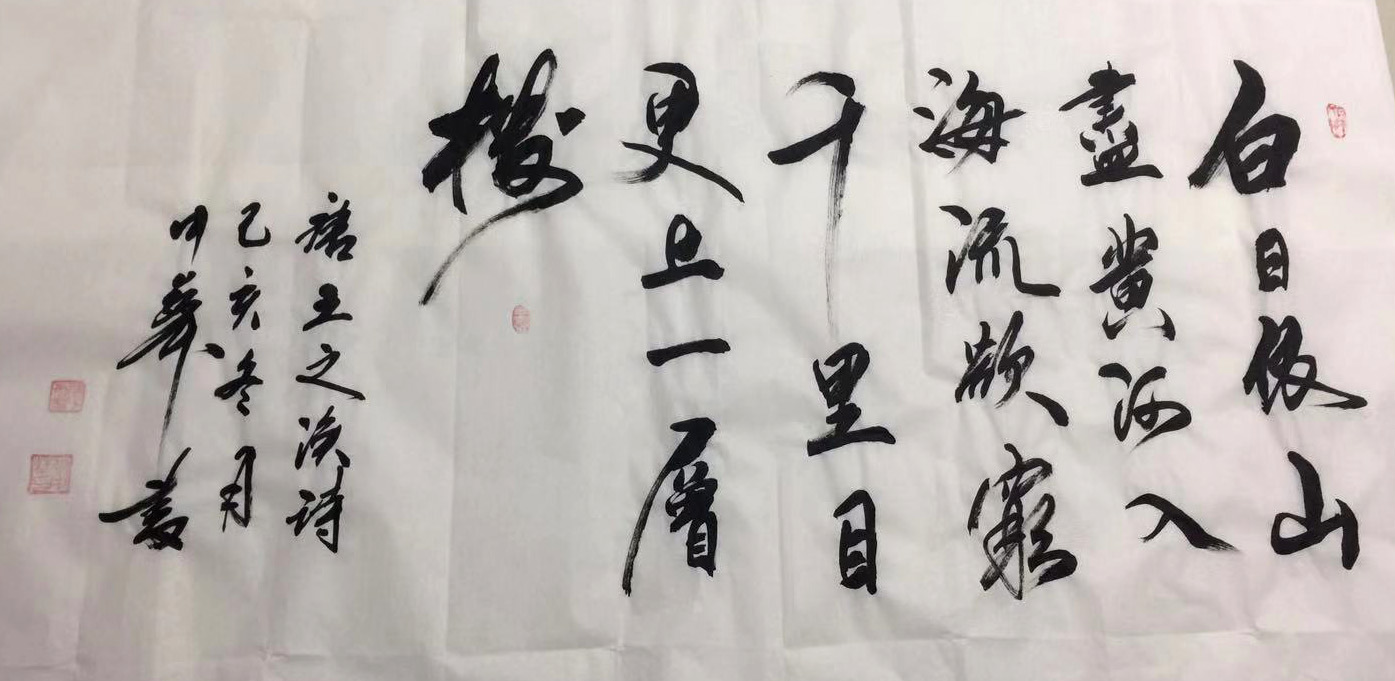 白日依山
盡黄河入
海流欲窮
千里目
更上一層
樓
唐王之渙詩
己亥冬月
中華書